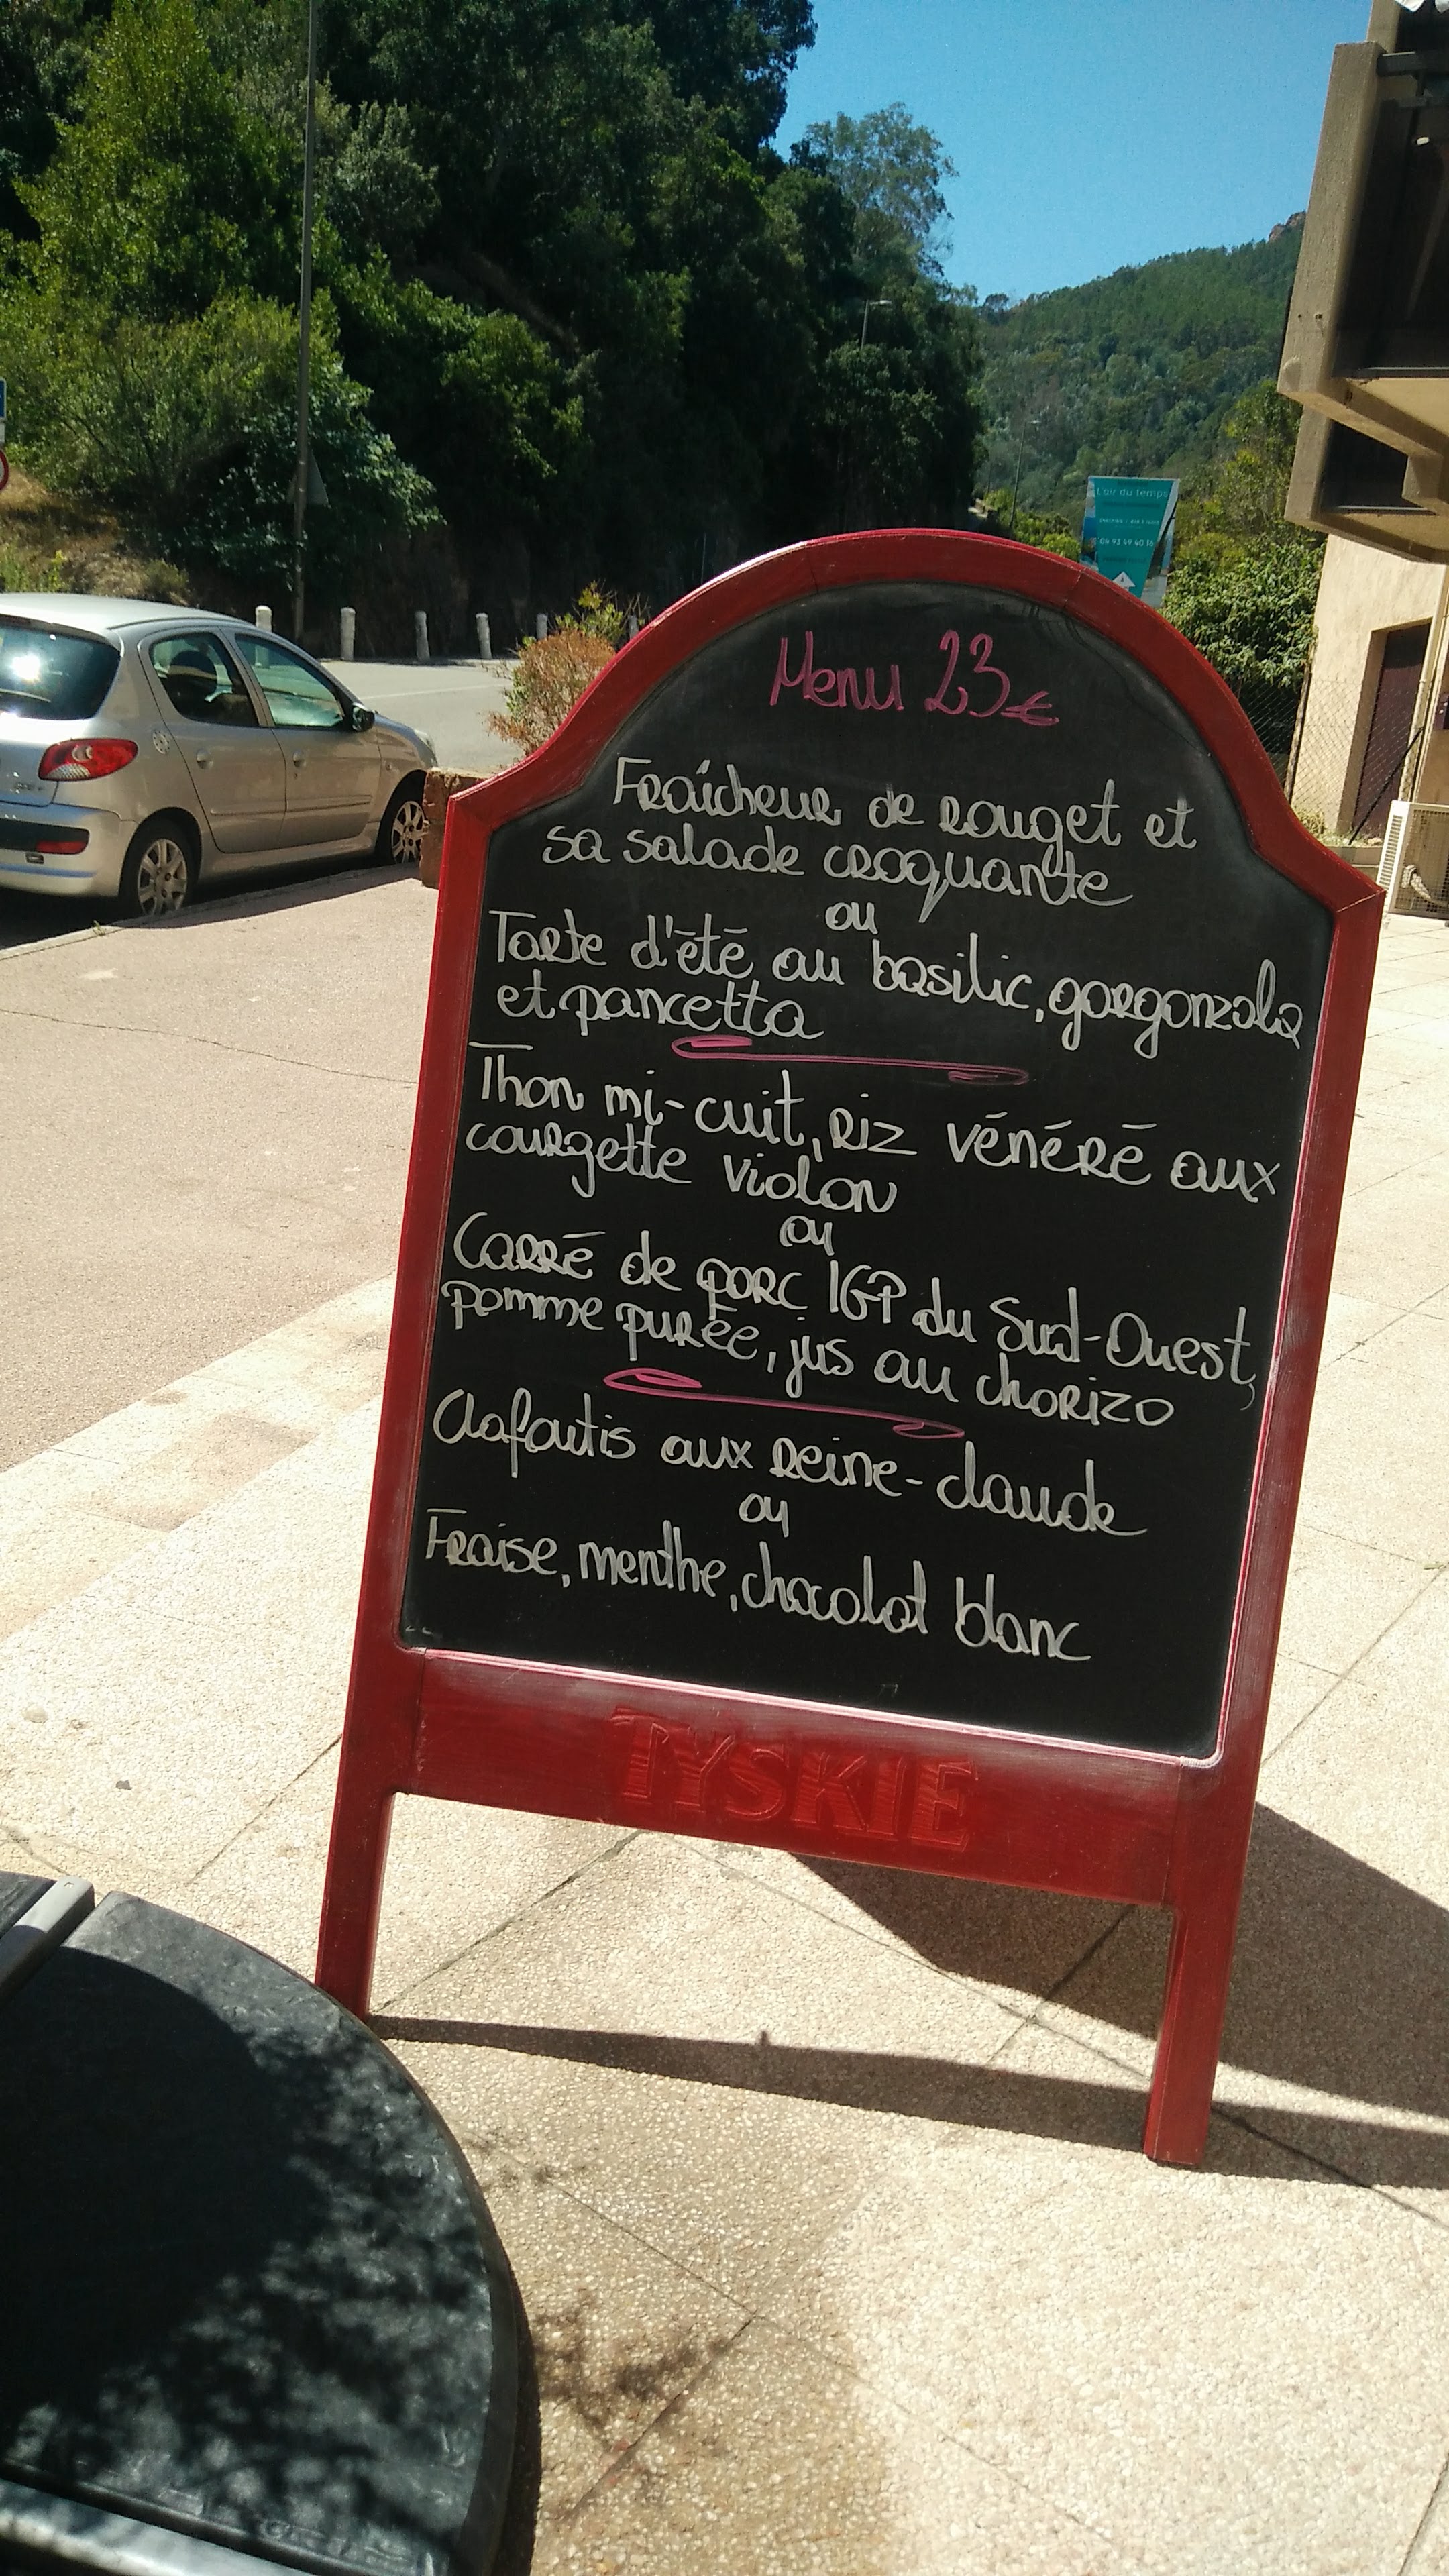 L'air du temps
04 93 49 40 16
Menu 23€
Fraîcheur de rouget et
sa salade croquante
ou
Tarte d'été au basilic, gorgonzola
et pancetta
Thon mi-cuit, riz vénéré aux
courgette violon
ou
Carré de porc IGP du Sud-Ouest,
pomme purée, jus au chorizo
Clafoutis aux reine-claude
ou
Fraise, menthe, chocolat blanc
TYSKIE